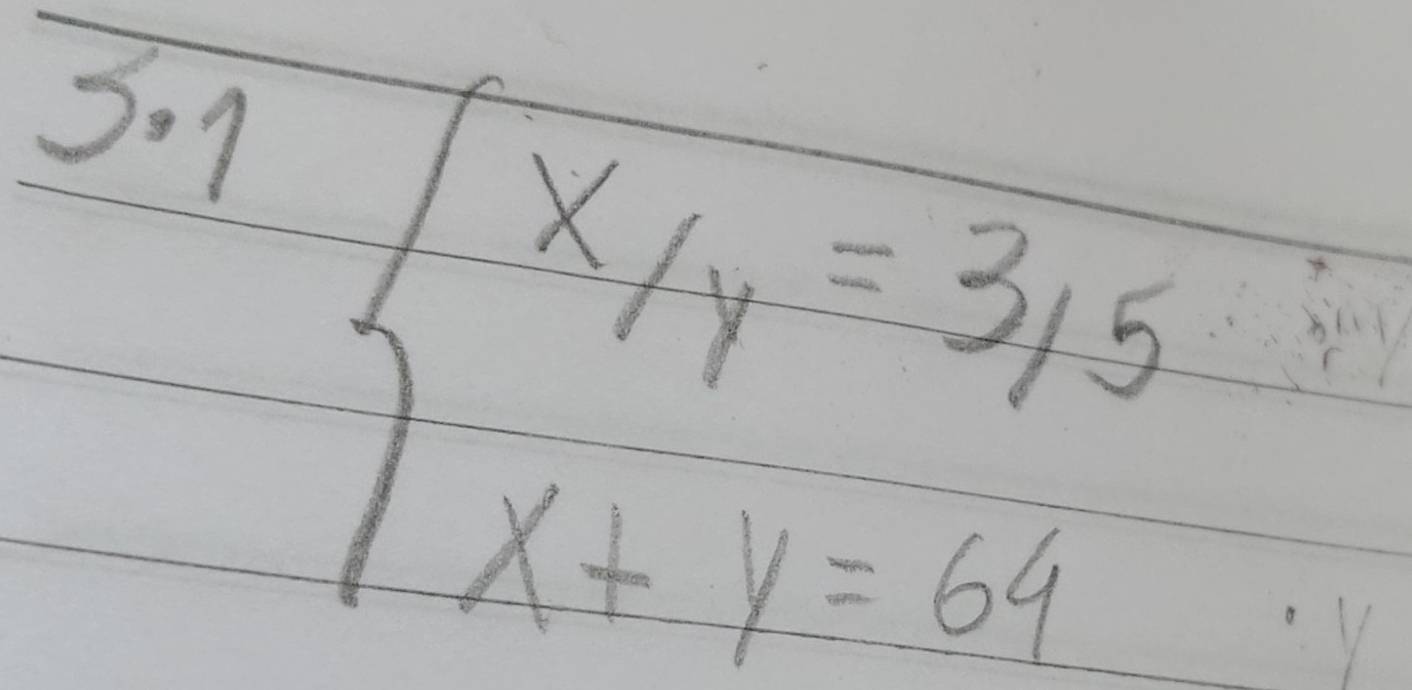 3.1
x/y = 3,5
x + y = 64 · y